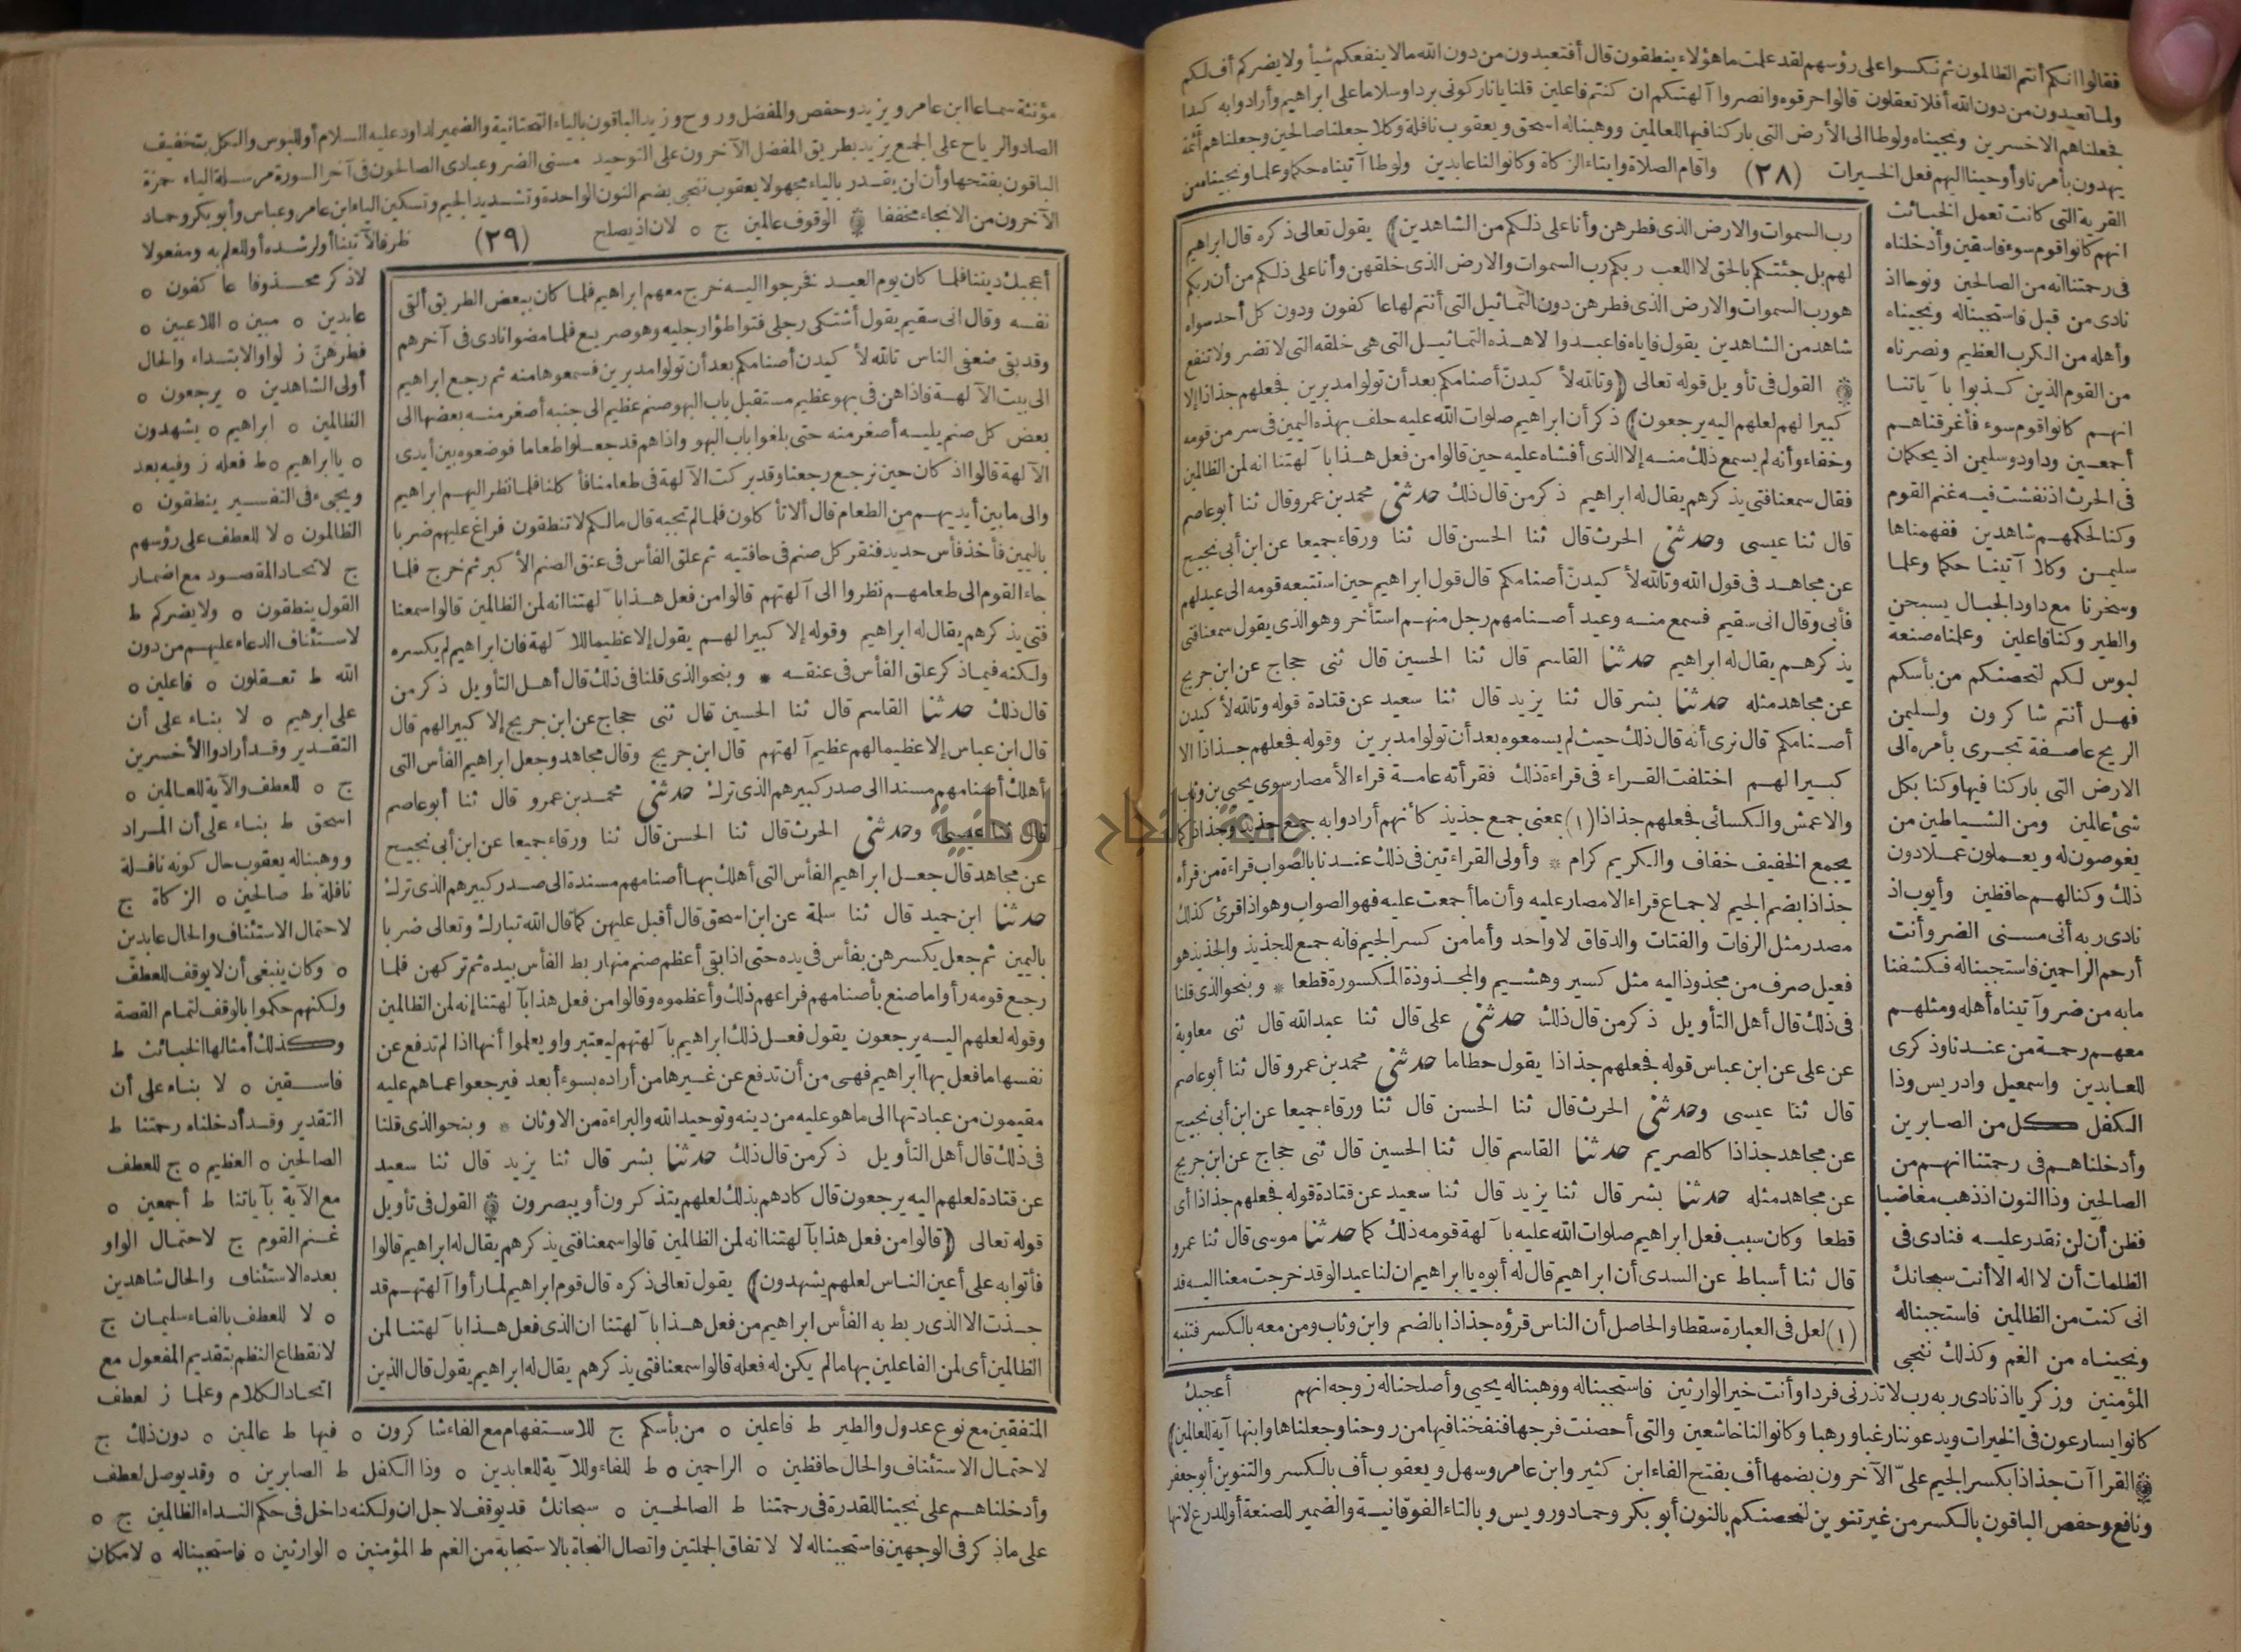 فقالوا انكم أنتم الظالمون ثم نكسوا على رؤسهم لقد علمت ما هؤلاء ينطقون قال أفتعبدون من دون الله مالا ينفعكم شيأ ولا يضركم أف لكم
ولما تعبدون من دون الله أفلا تعقلون قالوا حرقوه وانصروا آلهتكم ان كنتم فاعلين قلنا يا نار كونى بردا وسلاما على ابراهيم وأرادوا به كيدا
فجعلناهم الاخسرين ونجيناه ولوطا الى الأرض التى باركنا فيها للعالمين ووهبنا له اسحق ويعقوب نافلة وكلا جعلنا صالحين وجعلناهم أئمة
يهدون بأمرنا وأوحينا اليهم فعل الخيرات (٢٨) واقام الصلاة وايتاء الزكاة وكانوا لنا عابدين ولوطا آتيناه حكما وعلما ونجيناه من
القرية التى كانت تعمل الخبائث
انهم كانوا قوم سوء فاسقين وأدخلناه
فى رحمتنا انه من الصالحين ونوحا اذ
نادى من قبل فاستجبنا له ونجيناه
وأهله من الكرب العظيم ونصرناه
من القوم الذين كذبوا بآياتنا
انهم كانوا قوم سوء فأغرقناهم
أجمعين وداود وسليمن اذ يحكمان
فى الحرث اذ نفشت فيه غنم القوم
وكنا لحكمهم شاهدين ففهمناها
سليمن وكلا آتينا حكما وعلما
وسخرنا مع داود الجبال يسبحن
والطير وكنا فاعلين وعلمناه صنعة
لبوس لكم لتحصنكم من بأسكم
فهل أنتم شاكرون ولسليمن
الريح عاصفة تجرى بأمره الى
الارض التى باركنا فيها وكنا بكل
شئ عالمين ومن الشياطين من
يغوصون له ويعملون عملا دون
ذلك وكنا لهم حافظين وأيوب اذ
نادى ربه أنى مسنى الضر وأنت
أرحم الراحمين فاستجبنا له فكشفنا
مابه من ضر وآتيناه أهله ومثلهم
معهم رحمة من عندنا وذكرى
للعابدين واسمعيل وادريس وذا
الكفل كل من الصابرين
وأدخلناهم فى رحمتنا انهم من
الصالحين وذا النون اذ ذهب مغاضبا
فظن أن لن نقدر عليه فنادى فى
الظلمات أن لا اله الا أنت سبحانك
انى كنت من الظالمين فاستجبنا له
ونجيناه من الغم وكذلك ننجى
رب السموات والارض الذى فطرهن وأنا على ذلكم من الشاهدين) يقول تعالى ذكره قال ابراهيم
لهم بل جئتكم بالحق لا اللعب ربكم رب السموات والارض الذى خلقهن وأنا على ذلكم من أن ربكم
هو رب السموات والارض الذى فطرهن دون التماثيل التى أنتم لها عاكفون ودون كل أحد سواه
شاهد من الشاهدين يقول فاياه فاعبدوا لا هذه التماثيل التى هى خلقه التى لا تضر ولا تنفع
القول فى تأويل قوله تعالى (وتالله لأكيدنّ أصنامكم بعد أن تولوا مدبرين فجعلهم جذاذا إلا
كبيرا لهم لعلهم اليه يرجعون) ذكر أن ابراهيم صلوات الله عليه حلف بهذه اليمين فى سر من قومه
وخفاء وأنه لم يسمع ذلك منه إلا الذى أفشاه عليه حين قالوا من فعل هذا بآلهتنا انه لمن الظالمين
فقال سمعنا فتى يذكرهم يقال له ابراهيم ذكر من قال ذلك حدثنى محمد بن عمرو قال ثنا أبو عاصم
قال ثنا عيسى وحدثنى الحرث قال ثنا الحسن قال ثنا ورقاء جميعا عن ابن أبى نجيح
عن مجاهد فى قول الله وتالله لأكيدنّ أصنامكم قال قول ابراهيم حين استتبعه قومه الى عيد لهم
فأبى وقال انى سقيم فسمع منه وعيد أصنامهم رجل منهم استأخر وهو الذى يقول سمعنا فتى
يذكرهم يقال له ابراهيم حدثنا القاسم قال ثنا الحسين قال ثنى حجاج عن ابن جريج
عن مجاهد مثله حدثنا بشر قال ثنا يزيد قال ثنا سعيد عن قتادة قوله وتالله لأكيدن
أصنامكم قال نرى أنه قال ذلك حيث لم يسمعوه بعد أن تولوا مدبرين وقوله فجعلهم جذاذا الا
كبيرا لهم اختلفت القراء فى قراءة ذلك فقرأته عامة قراء الأمصار سوى يحيى بن وثاب
والاعمش والكسائى فجعلهم جذاذا (١) بمعنى جمع جذيذ كأنهم أرادوا به جمع جذيذ وجذاذ كما
يجمع الخفيف خفاف والكريم كرام * وأولى القراءتين فى ذلك عندنا بالصواب قراءة من قرأه
جذاذا بضم الجيم لاجماع قراء الامصار عليه وأن ما أجمعت عليه فهو الصواب وهو اذا قرئ كذلك
مصدر مثل الرفات والفتات والدقاق لا واحد وأما من كسر الجيم فانه جمع للجذيذ والجذيذ هو
فعيل صرف من مجذوذ اليه مثل كسير وهشيم والمجذوذة المكسورة قطعا * وبنحو الذى قلنا
فى ذلك قال أهل التأويل ذكر من قال ذلك حدثنى على قال ثنا عبد الله قال ثنى معاوية
عن على عن ابن عباس قوله فجعلهم جذاذا يقول حطاما حدثنى محمد بن عمرو قال ثنا أبو عاصم
قال ثنا عيسى وحدثنى الحرث قال ثنا الحسن قال ثنا ورقاء جميعا عن ابن أبى نجيح
عن مجاهد جذاذا كالصريم حدثنا القاسم قال ثنا الحسين قال ثنى حجاج عن ابن جريج
عن مجاهد مثله حدثنا بشر قال ثنا يزيد قال ثنا سعيد عن قتادة قوله فجعلهم جذاذا أى
قطعا وكان سبب فعل ابراهيم صلوات الله عليه بآلهة قومه ذلك كما حدثنا موسى قال ثنا عمرو
قال ثنا أسباط عن السدى أن ابراهيم قال له أبوه يا ابراهيم ان لنا عيدا لو قد خرجت معنا اليه قد
(١) لعل فى العبارة سقطا والحاصل أن الناس قرؤه جذاذا بالضم وابن وثاب ومن معه بالكسر فتنبه
أعجبك
المؤمنين وزكريا اذ نادى ربه رب لا تذرنى فردا وأنت خير الوارثين فاستجبنا له ووهبنا له يحيى وأصلحنا له زوجه انهم
كانوا يسارعون فى الخيرات ويدعوننا رغبا ورهبا وكانوا لنا خاشعين والتى أحصنت فرجها فنفخنا فيها من روحنا وجعلناها وابنها آية للعالمين)
القراآت جذاذا بكسر الجيم علىّ الآخرون بضمها أف بفتح الفاء ابن كثير وابن عامر وسهل ويعقوب أف بالكسر والتنوين أبو جعفر
ونافع وحفص الباقون بالكسر من غير تنوين لنحصنكم بالنون أبو بكر وحماد ورويس وبالتاء الفوقانية والضمير للصنعة أو للدرع لانها
مؤنثة سماعا ابن عامر ويزيد وحفص والمفضل وروح وزيد الباقون بالياء التحتانية والضمير لداود عليه السلام أو للبوس والكل بتخفيف
الصاد والرياح على الجمع يزيد بطريق المفضل الآخرون على التوحيد مسنى الضر وعبادى الصالحون فى آخر السورة مرسلة الياء حمزة
الباقون بفتحها وأن لن يقدر بالياء مجهولا يعقوب ننجى بضم النون الواحدة وتشديد الجيم وتسكين الياء ابن عامر وعباس وأبو بكر وحماد
الآخرون من الانجاء مخففا الوقوف عالمين ج ه لان اذ يصلح (٢٩) ظرفا لآتينا أو لرشده أو للعلم به ومفعولا
لاذكر محذوفا عاكفون ه
عابدين ه مبين ه اللاعبين ه
فطرهنّ ز لواو الابتداء والحال
أولى الشاهدين ه يرجعون ه
الظالمين ه ابراهيم ه يشهدون
ه يا ابراهيم ه ط فعله ز وفيه بعد
ويجىء فى التفسير ينطقون ه
الظالمون ه لا للعطف على رؤسهم
ج لاتحاد المقصود مع اضمار
القول ينطقون ه ولا يضركم ط
لاستئناف الدعاء عليهم من دون
الله ط تعقلون ه فاعلين ه
على ابرهيم ه لا بناء على أن
التقدير وقد أرادوا الأخسرين
ج ه للعطف والآية للعالمين ه
اسحق ط بناء على أن المراد
ووهبنا له يعقوب حال كونه نافلة
نافلة ط صالحين ه الزكاة ج
لاحتمال الاستئناف والحال عابدين
ه وكان ينبغى أن لا يوقف للعطف
ولكنهم حكموا بالوقف لتمام القصة
وكذلك أمثالها الخبائث ط
فاسقين ه لا بناء على أن
التقدير وقد أدخلناه رحمتنا ط
الصالحين ه العظيم ه ج للعطف
مع الآية بآياتنا ط أجمعين ه
غنم القوم ج لاحتمال الواو
بعده الاستئناف والحال شاهدين
ه لا للعطف بالفاء سليمان ج
لانقطاع النظم بتقديم المفعول مع
اتحاد الكلام وعلما ز لعطف
أعجبك ديننا فلما كان يوم العيد فخرجوا اليه خرج معهم ابراهيم فلما كان ببعض الطريق ألقى
نفسه وقال انى سقيم يقول أشتكى رجلى فتواطؤا رجليه وهو صريع فلما مضوا نادى فى آخرهم
وقد بقى ضعفى الناس تالله لأكيدن أصنامكم بعد أن تولوا مدبرين فسمعوها منه ثم رجع ابراهيم
الى بيت الآلهة فاذا هن فى بهو عظيم مستقبل باب البهو صنم عظيم الى جنبه أصغر منه بعضها الى
بعض كل صنم يليه أصغر منه حتى بلغوا باب البهو واذا هم قد جعلوا طعاما فوضعوه بين أيدى
الآلهة قالوا اذ كان حين نرجع رجعنا وقد بركت الآلهة فى طعامنا فأكلنا فلما نظر اليهم ابراهيم
والى ما بين أيديهم من الطعام قال ألا تأكلون فلما لم تجبه قال مالكم لا تنطقون فراغ عليهم ضربا
باليمين فأخذ فأس حديد فنقر كل صنم فى حافتيه ثم علق الفأس فى عنق الصنم الأكبر ثم خرج فلما
جاء القوم الى طعامهم نظروا الى آلهتهم قالوا من فعل هذا بآلهتنا انه لمن الظالمين قالوا سمعنا
فتى يذكرهم يقال له ابراهيم وقوله إلا كبيرا لهم يقول إلا عظيما للآلهة فان ابراهيم لم يكسره
ولكنه فيما ذكر علق الفأس فى عنقه * وبنحو الذى قلنا فى ذلك قال أهل التأويل ذكر من
قال ذلك حدثنا القاسم قال ثنا الحسين قال ثنى حجاج عن ابن جريج إلا كبيرا لهم قال
قال ابن عباس إلا عظيما لهم عظيم آلهتهم قال ابن جريج وقال مجاهد وجعل ابراهيم الفأس التى
أهلك أصنامهم مسندا الى صدر كبيرهم الذى ترك حدثنى محمد بن عمرو قال ثنا أبو عاصم
قال ثنا عيسى وحدثنى الحرث قال ثنا الحسن قال ثنا ورقاء جميعا عن ابن أبى نجيح
عن مجاهد قال جعل ابراهيم الفأس التى أهلك بها أصنامهم مسندة الى صدر كبيرهم الذى ترك
حدثنا ابن حميد قال ثنا سلمة عن ابن اسحق قال أقبل عليهن كما قال الله تبارك وتعالى ضربا
باليمين ثم جعل يكسرهن بفأس فى يده حتى اذا بقى أعظم صنم منها ربط الفأس بيده ثم تركهن فلما
رجع قومه رأوا ما صنع بأصنامهم فراعهم ذلك وأعظموه وقالوا من فعل هذا بآلهتنا إنه لمن الظالمين
وقوله لعلهم اليه يرجعون يقول فعل ذلك ابراهيم بآلهتهم ليعتبروا ويعلموا أنها اذا لم تدفع عن
نفسها ما فعل بها ابراهيم فهى من أن تدفع عن غيرها من أراده بسوء أبعد فيرجعوا عما هم عليه
مقيمون من عبادتها الى ما هو عليه من دينه وتوحيد الله والبراءة من الاوثان * وبنحو الذى قلنا
فى ذلك قال أهل التأويل ذكر من قال ذلك حدثنا بشر قال ثنا يزيد قال ثنا سعيد
عن قتادة لعلهم اليه يرجعون قال كادهم بذلك لعلهم يتذكرون أو يبصرون القول فى تأويل
قوله تعالى (قالوا من فعل هذا بآلهتنا انه لمن الظالمين قالوا سمعنا فتى يذكرهم يقال له ابراهيم قالوا
فأتوا به على أعين الناس لعلهم يشهدون) يقول تعالى ذكره قال قوم ابراهيم لما رأوا آلهتهم قد
جذت الا الذى ربط به الفأس ابراهيم من فعل هذا بآلهتنا ان الذى فعل هذا بآلهتنا لمن
الظالمين أى لمن الفاعلين بها ما لم يكن له فعله قالوا سمعنا فتى يذكرهم يقال له ابراهيم يقول قال الذين
المتفقين مع نوع عدول والطير ط فاعلين ه من بأسكم ج للاستفهام مع الفاء شاكرون ه فيها ط عالمين ه دون ذلك ج
لاحتمال الاستئناف والحال حافظين ه الراحمين ه ط للفاء وللآية للعابدين ه وذا الكفل ط الصابرين ه وقد يوصل لعطف
وأدخلناهم على نجينا للقدرة فى رحمتنا ط الصالحين ه سبحانك قد يوقف لاجل ان ولكنه داخل فى حكم النداء الظالمين ج ه
على ما ذكر فى الوجهين فاستجبنا له لا لاتفاق الجملتين واتصال النجاة بالاستجابة من الغم ط المؤمنين ه الوارثين ه فاستجبنا له ه لامكان
جامعة النجاح الوطنية